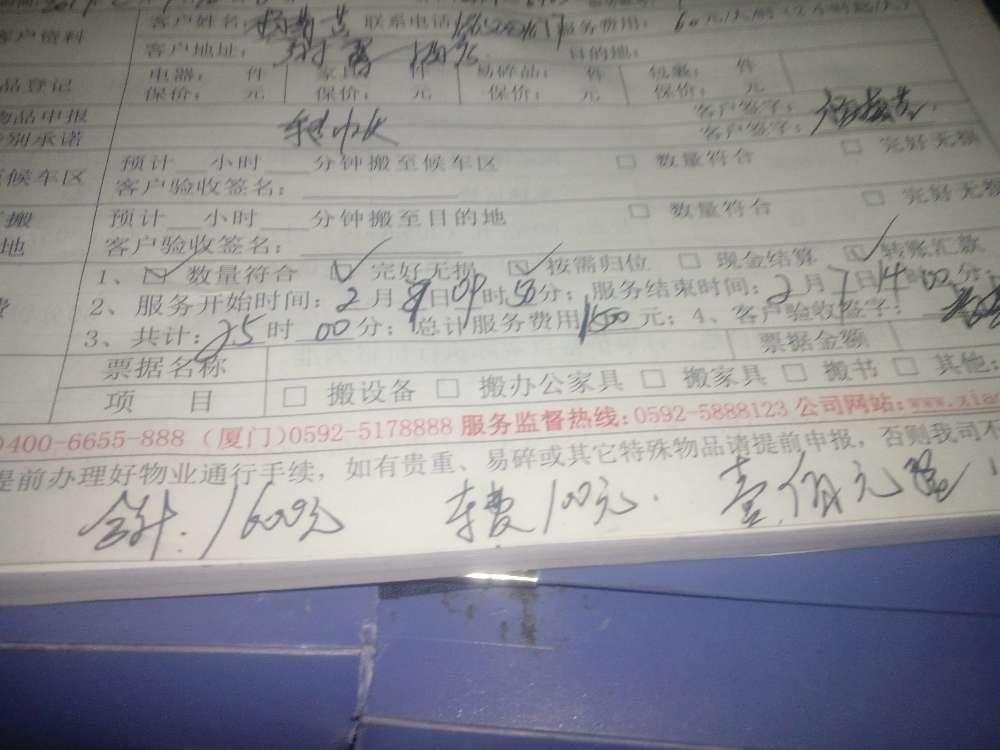 客户资料 客户姓名: 联系电话 服务费用: 60元/人/时(2小时起/人)
客户地址: 目的地:
品登记 电器: 件 家具: 件 易碎品: 件 包裹: 件
保价: 元 保价: 元 保价: 元 保价: 元
物品申报 客户签字:
别承诺 客户签字:
候车区 预计 小时 分钟搬至候车区 □ 数量符合 □ 完好无损
客户验收签名:
搬 预计 小时 分钟搬至目的地 □ 数量符合 □ 完好无损
地 客户验收签名:
1、☑ 数量符合 ☑ 完好无损 ☑ 按需归位 □ 现金结算 ☑ 转账汇款
费 2、服务开始时间: 2月 日09时50分; 服务结束时间: 2月7日14时00分;
3、共计: 25时00分; 总计服务费用1500元; 4、客户验收签字:
票据名称 票据金额
项 目 □ 搬设备 □ 搬办公家具 □ 搬家具 □ 搬书 □ 其他:
)400-6655-888 (厦门)0592-5178888 服务监督热线: 0592-5888123 公司网站: www.xiao
提前办理好物业通行手续, 如有贵重、易碎或其它特殊物品请提前申报, 否则我司不
合计: 1600元 车费100元. 壹佰元整